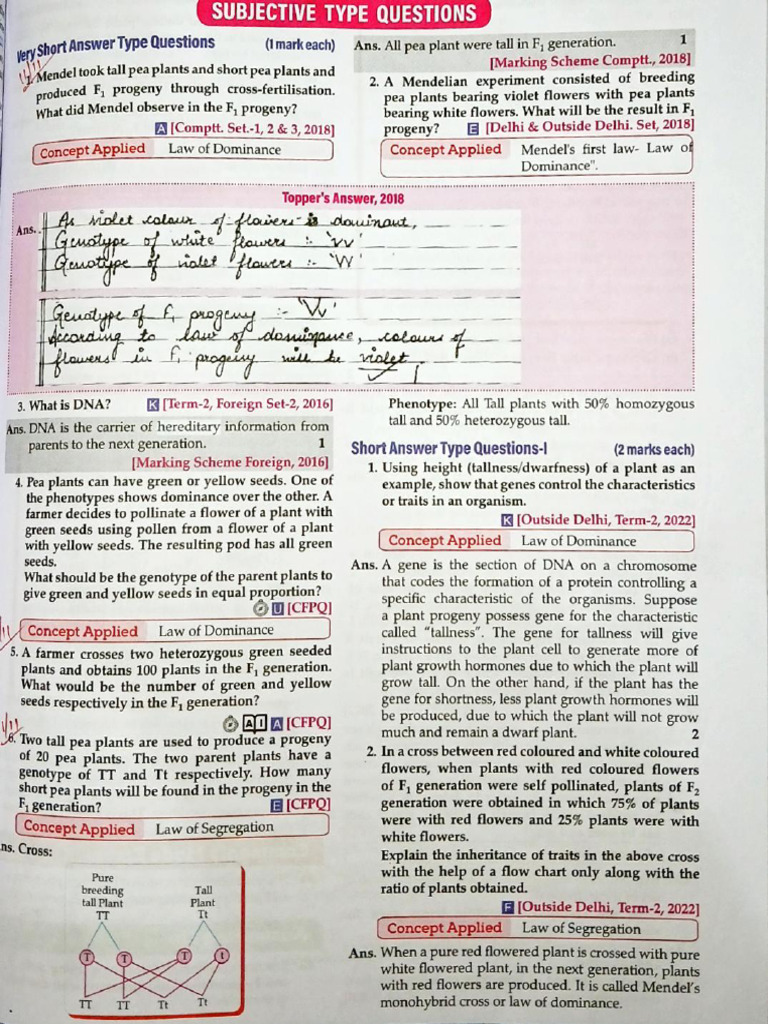 SUBJECTIVE TYPE QUESTIONS
Very Short Answer Type Questions (1 mark each)
1. Mendel took tall pea plants and short pea plants and
produced F1 progeny through cross-fertilisation.
What did Mendel observe in the F1 progeny?
A [Comptt. Set.-1, 2 & 3, 2018]
Concept Applied Law of Dominance
Ans. All pea plant were tall in F1 generation. 1
[Marking Scheme Comptt., 2018]
2. A Mendelian experiment consisted of breeding
pea plants bearing violet flowers with pea plants
bearing white flowers. What will be the result in F1
progeny? E [Delhi & Outside Delhi. Set, 2018]
Concept Applied Mendel's first law- Law of
Dominance".
Topper's Answer, 2018
Ans.
As violet colour of flowers is dominant,
Genotype of white flowers :- 'vv'
Genotype of violet flowers :- 'VV'
Genotype of F1 progeny :- 'Vv'
According to law of dominance, colours of
flowers in F1 progeny will be violet
1
3. What is DNA? K [Term-2, Foreign Set-2, 2016]
Ans. DNA is the carrier of hereditary information from
parents to the next generation. 1
[Marking Scheme Foreign, 2016]
4. Pea plants can have green or yellow seeds. One of
the phenotypes shows dominance over the other. A
farmer decides to pollinate a flower of a plant with
green seeds using pollen from a flower of a plant
with yellow seeds. The resulting pod has all green
seeds.
What should be the genotype of the parent plants to
give green and yellow seeds in equal proportion?
U [CFPQ]
Concept Applied Law of Dominance
5. A farmer crosses two heterozygous green seeded
plants and obtains 100 plants in the F1 generation.
What would be the number of green and yellow
seeds respectively in the F1 generation?
AI A [CFPQ]
6. Two tall pea plants are used to produce a progeny
of 20 pea plants. The two parent plants have a
genotype of TT and Tt respectively. How many
short pea plants will be found in the progeny in the
F1 generation? E [CFPQ]
Concept Applied Law of Segregation
ns. Cross:
Pure
breeding
tall Plant
TT
Tall
Plant
Tt
T T T t
TT TT Tt Tt
Phenotype: All Tall plants with 50% homozygous
tall and 50% heterozygous tall.
Short Answer Type Questions-I (2 marks each)
1. Using height (tallness/dwarfness) of a plant as an
example, show that genes control the characteristics
or traits in an organism.
K [Outside Delhi, Term-2, 2022]
Concept Applied Law of Dominance
Ans. A gene is the section of DNA on a chromosome
that codes the formation of a protein controlling a
specific characteristic of the organisms. Suppose
a plant progeny possess gene for the characteristic
called "tallness". The gene for tallness will give
instructions to the plant cell to generate more of
plant growth hormones due to which the plant will
grow tall. On the other hand, if the plant has the
gene for shortness, less plant growth hormones will
be produced, due to which the plant will not grow
much and remain a dwarf plant. 2
2. In a cross between red coloured and white coloured
flowers, when plants with red coloured flowers
of F1 generation were self pollinated, plants of F2
generation were obtained in which 75% of plants
were with red flowers and 25% plants were with
white flowers.
Explain the inheritance of traits in the above cross
with the help of a flow chart only along with the
ratio of plants obtained.
F [Outside Delhi, Term-2, 2022]
Concept Applied Law of Segregation
Ans. When a pure red flowered plant is crossed with pure
white flowered plant, in the next generation, plants
with red flowers are produced. It is called Mendel's
monohybrid cross or law of dominance.